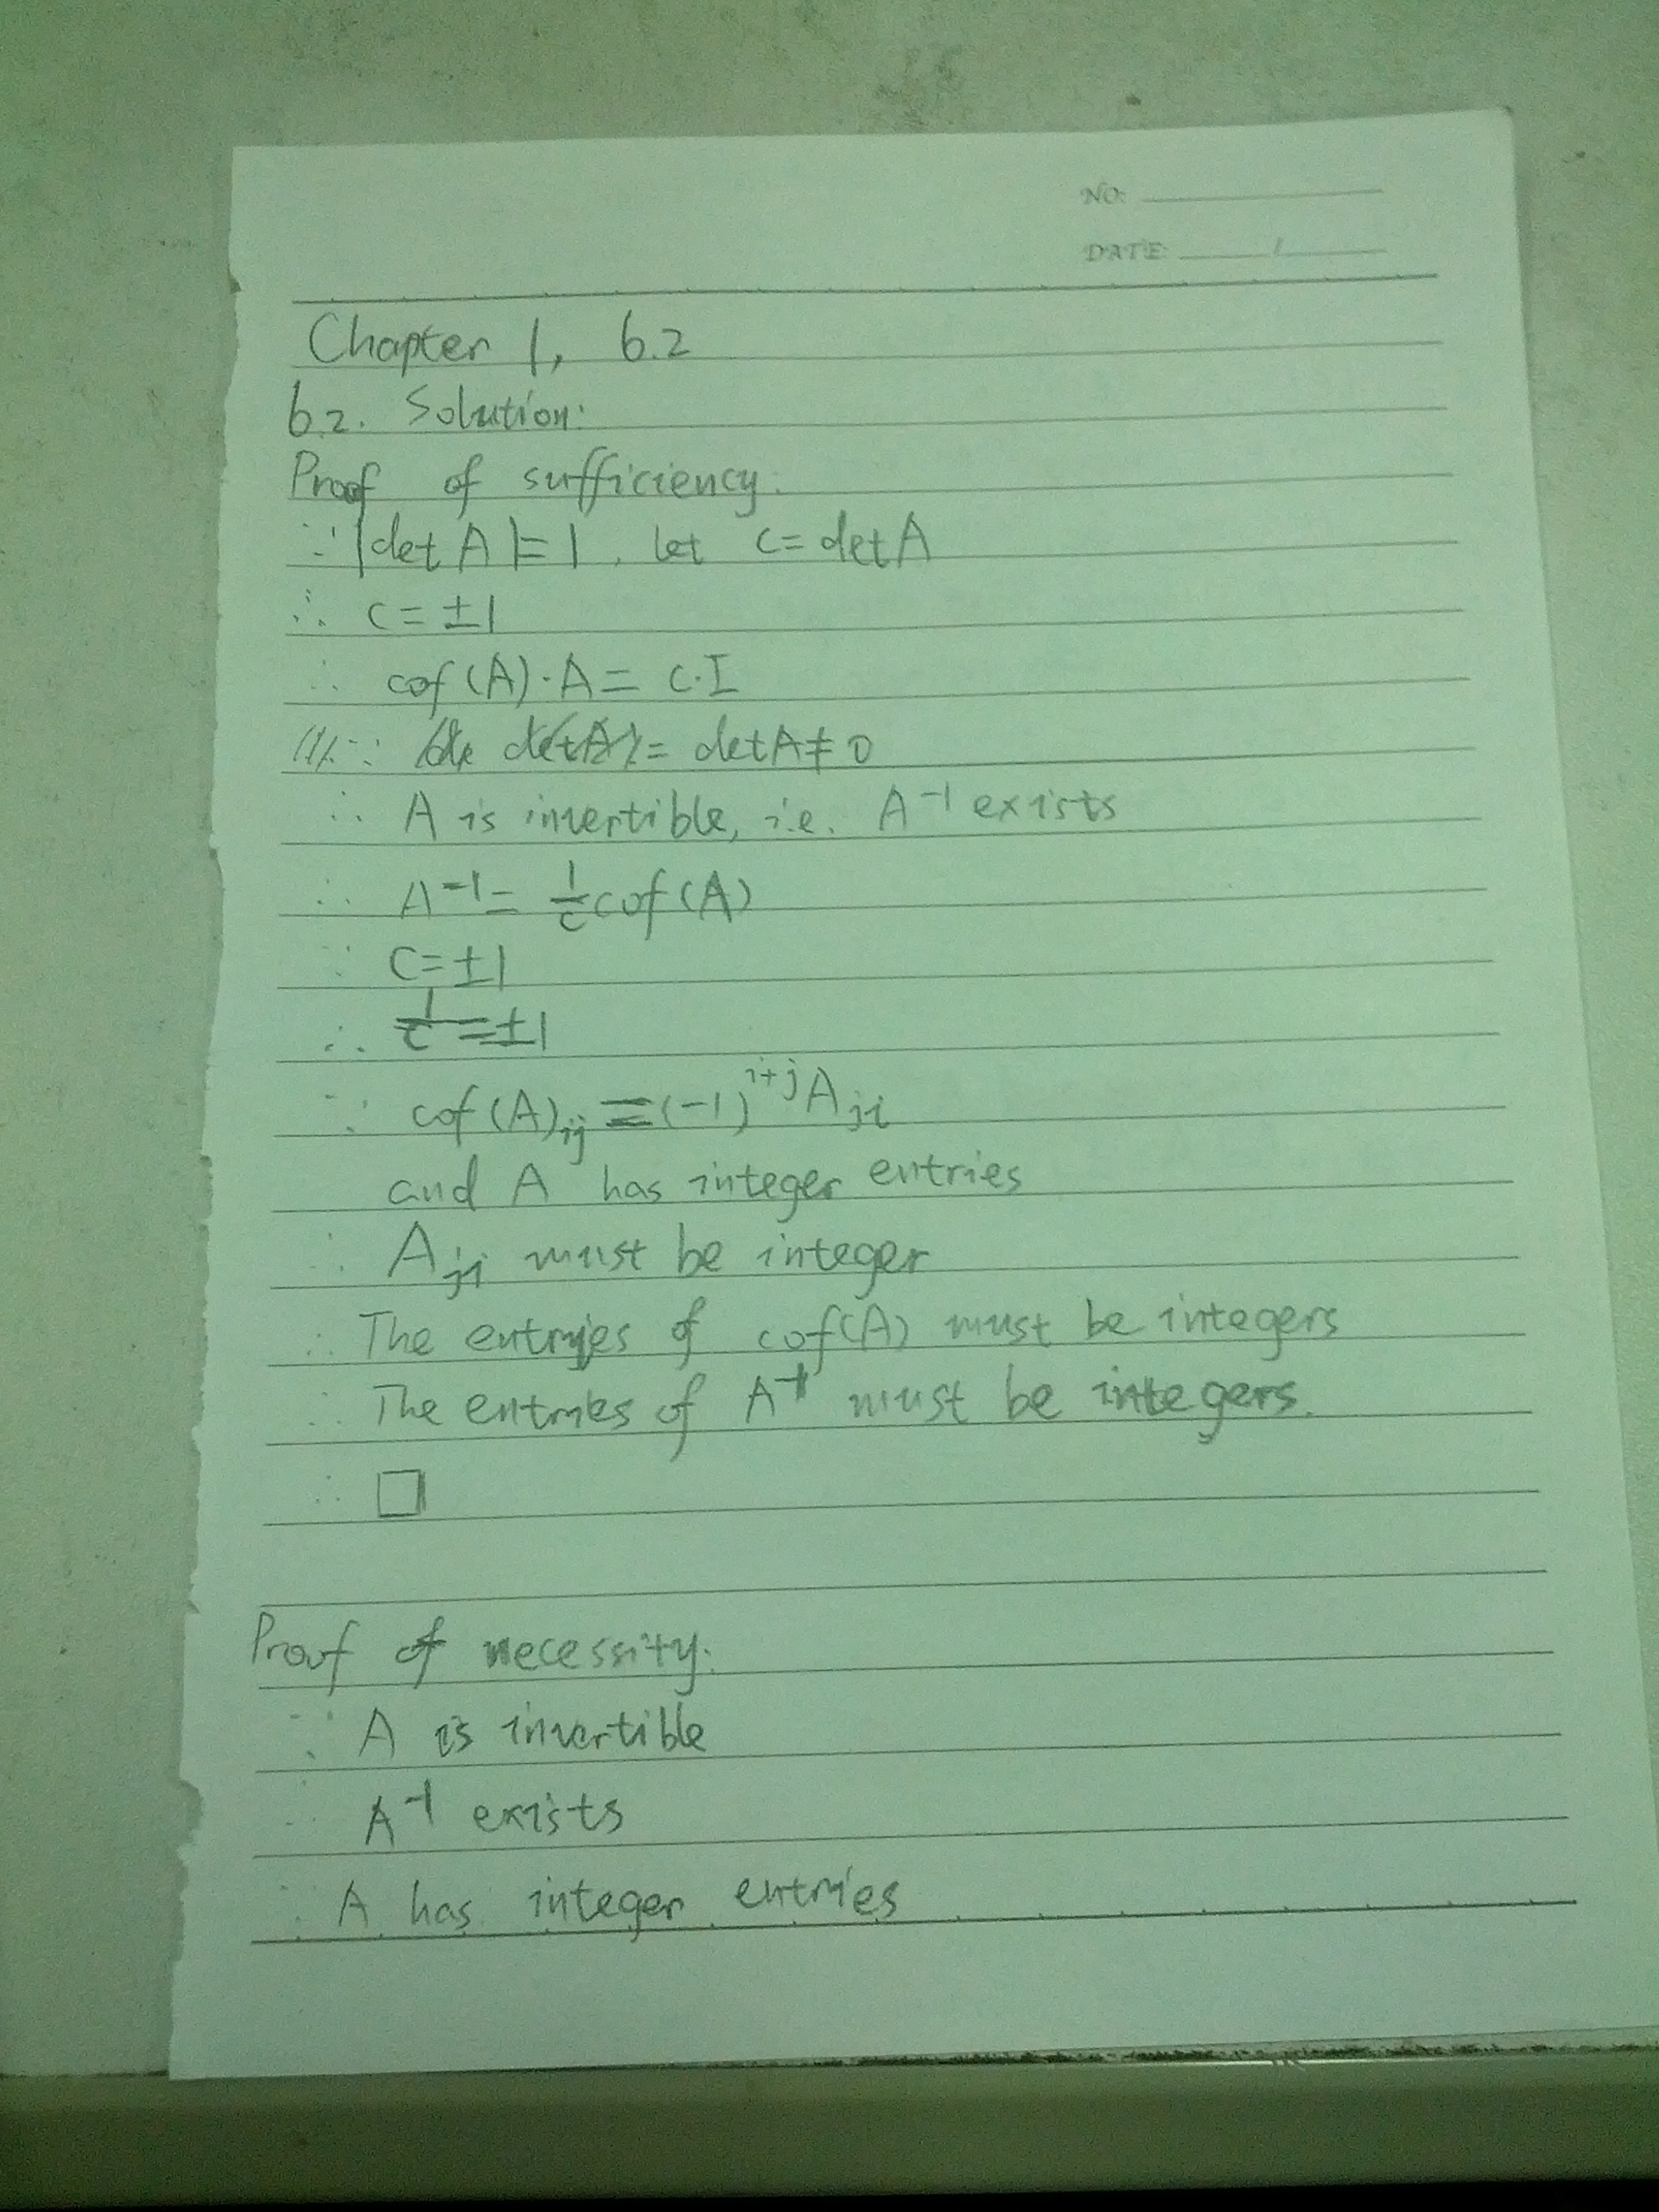 NO:
DATE: /
Chapter 1, 6.2
6.2. Solution:
Proof of sufficiency:
∵ |det A|=1, let c=detA
∴ c=±1
∴ cof(A)·A= c·I
∵ detA≠0
∴ A is invertible, i.e. A⁻¹ exists
∴ A⁻¹= 1/c cof(A)
∵ C=±1
∴ 1/c =±1
∵ cof(A)ᵢⱼ =(-1)ⁱ⁺ʲAⱼᵢ
and A has integer entries
∴ Aⱼᵢ must be integer
∴ The entries of cof(A) must be integers
∴ The entries of A⁻¹ must be integers.
∴ □
Proof of necessity:
∵ A is invertible
∴ A⁻¹ exists
∵ A has integer entries